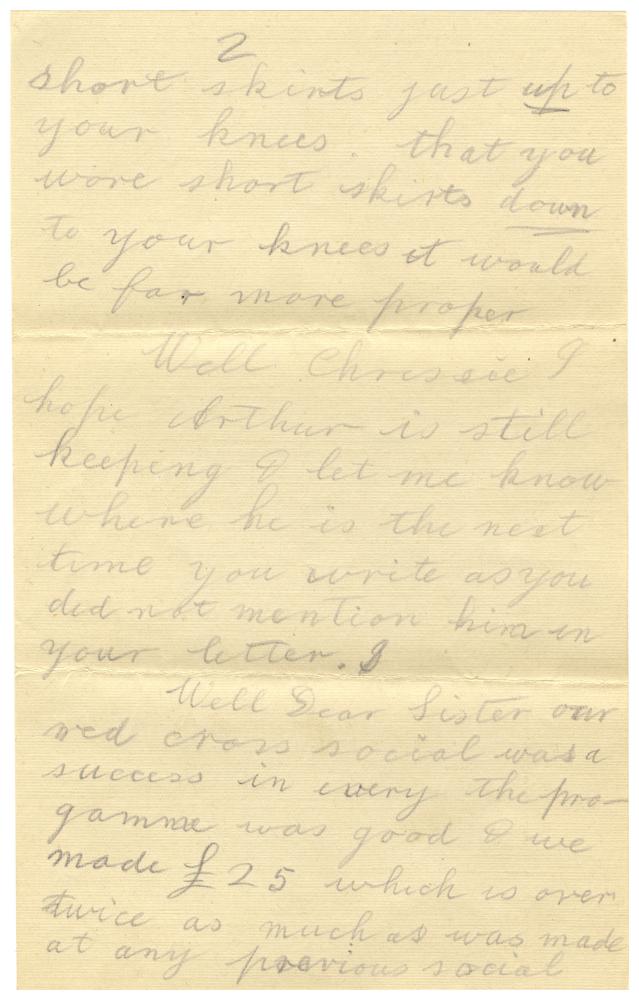 2
short skirts just up to
your knees. that you
wore short skirts down
to your knees it would
be far more proper
Well Chrissie I
hope Arthur is still
keeping & let me know
where he is the next
time you write as you
did not mention him in
your letter.
Well Dear Sister our
red cross social was a
success in every the pro-
gamme was good & we
made £25 which is over
twice as much as was made
at any previous social